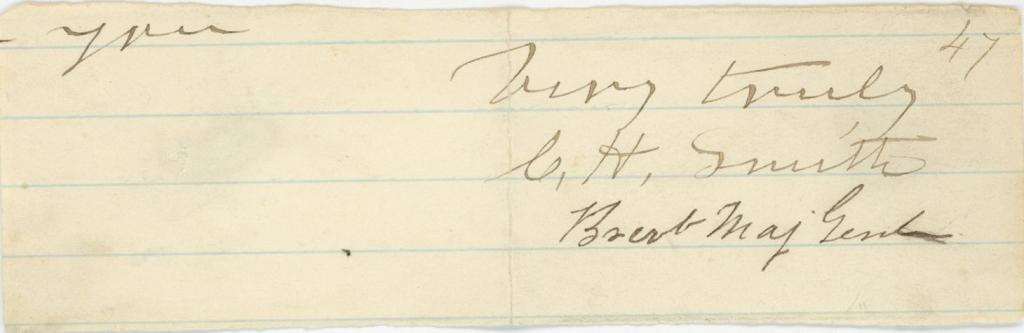 you
47
Very truly
C. H. Smith
Brevt Maj Genl